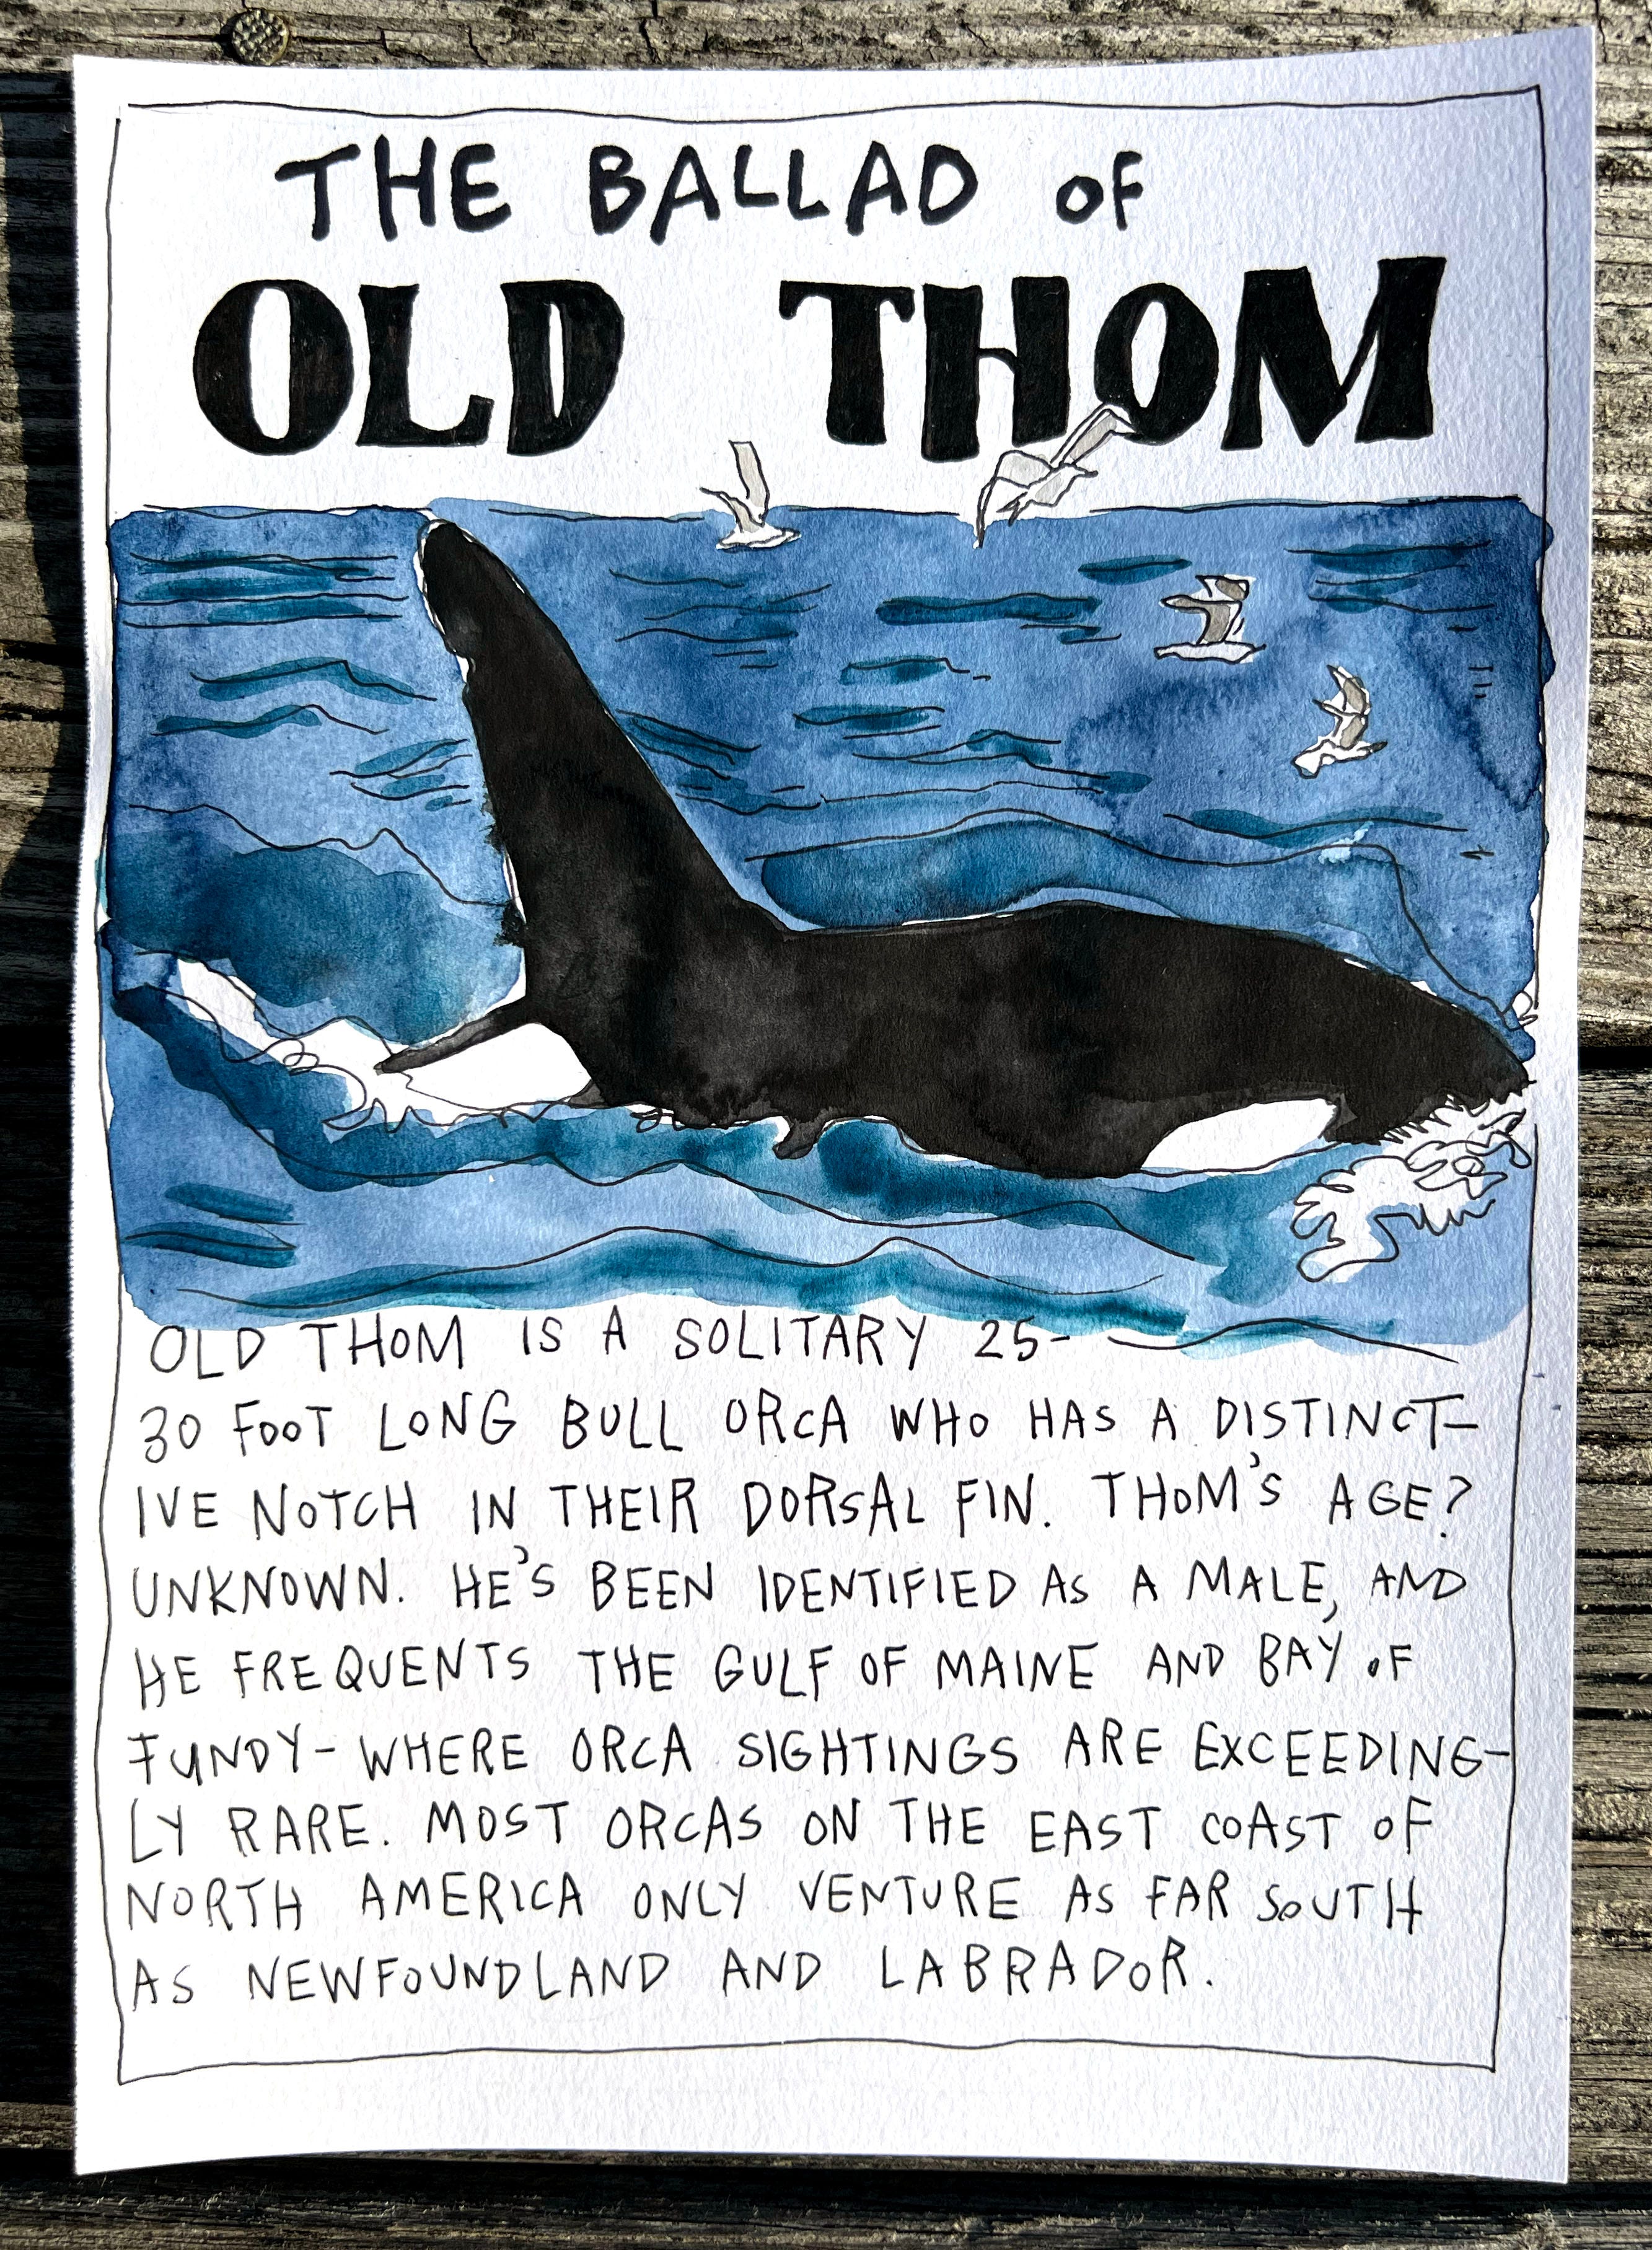 THE BALLAD OF
OLD THOM
OLD THOM IS A SOLITARY 25-
30 FOOT LONG BULL ORCA WHO HAS A DISTINCT-
IVE NOTCH IN THEIR DORSAL FIN. THOM'S AGE?
UNKNOWN. HE'S BEEN IDENTIFIED AS A MALE, AND
HE FREQUENTS THE GULF OF MAINE AND BAY OF
FUNDY - WHERE ORCA SIGHTINGS ARE EXCEEDING-
LY RARE. MOST ORCAS ON THE EAST COAST OF
NORTH AMERICA ONLY VENTURE AS FAR SOUTH
AS NEWFOUNDLAND AND LABRADOR.